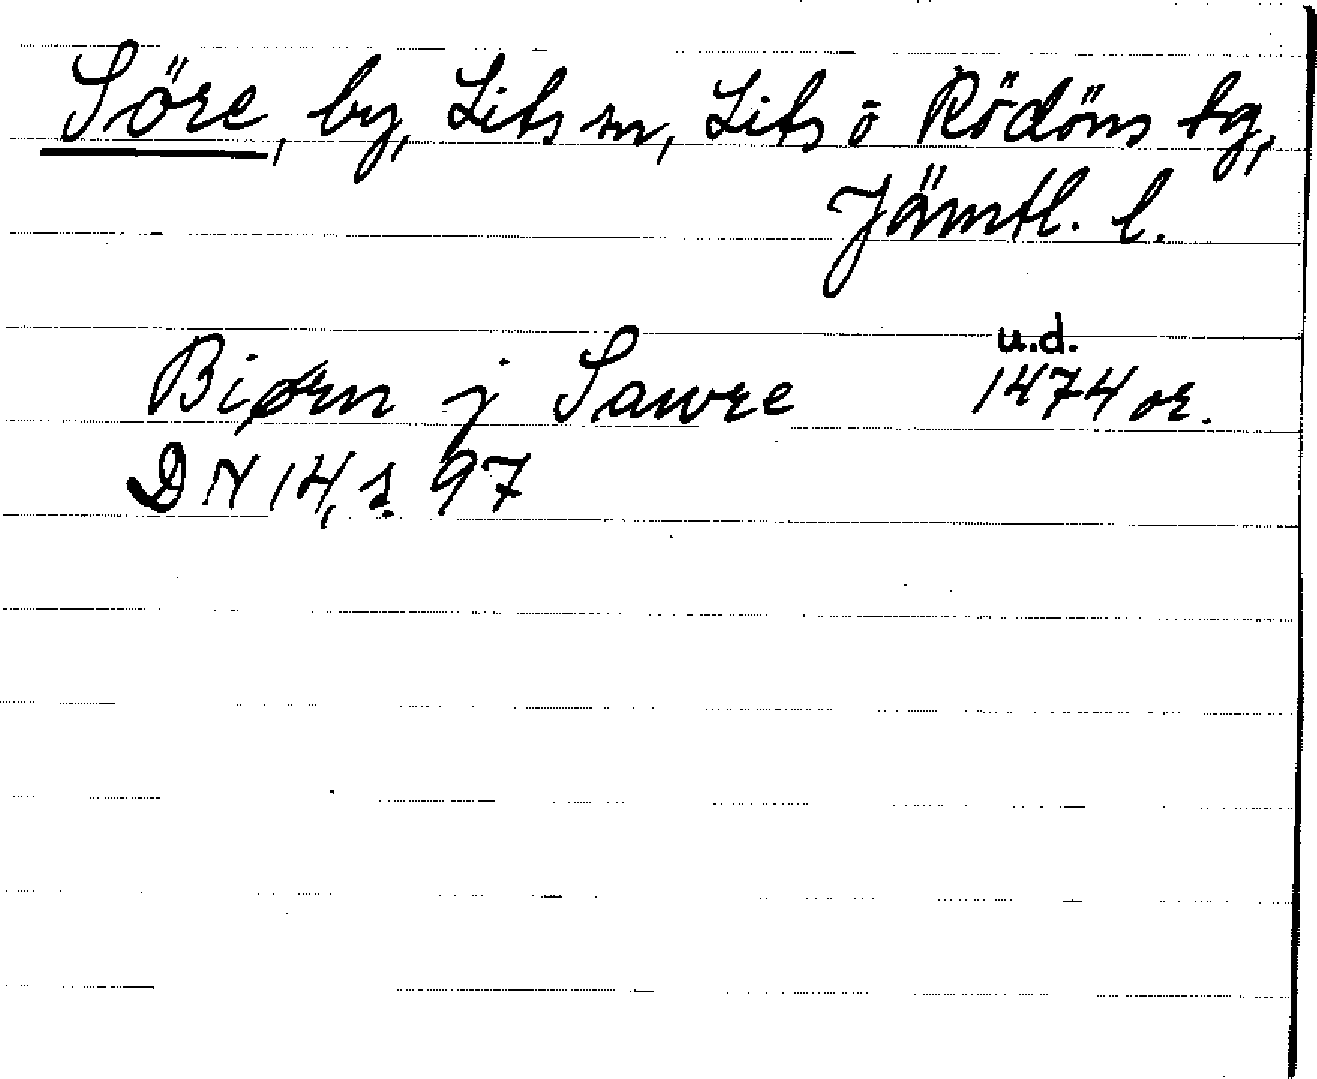 Söre, by, Lits sn, Lits o Rödöns tg,
Jämtl. l.
Biørn j Sawre u.d. 1474 or.
DN 14, s. 97